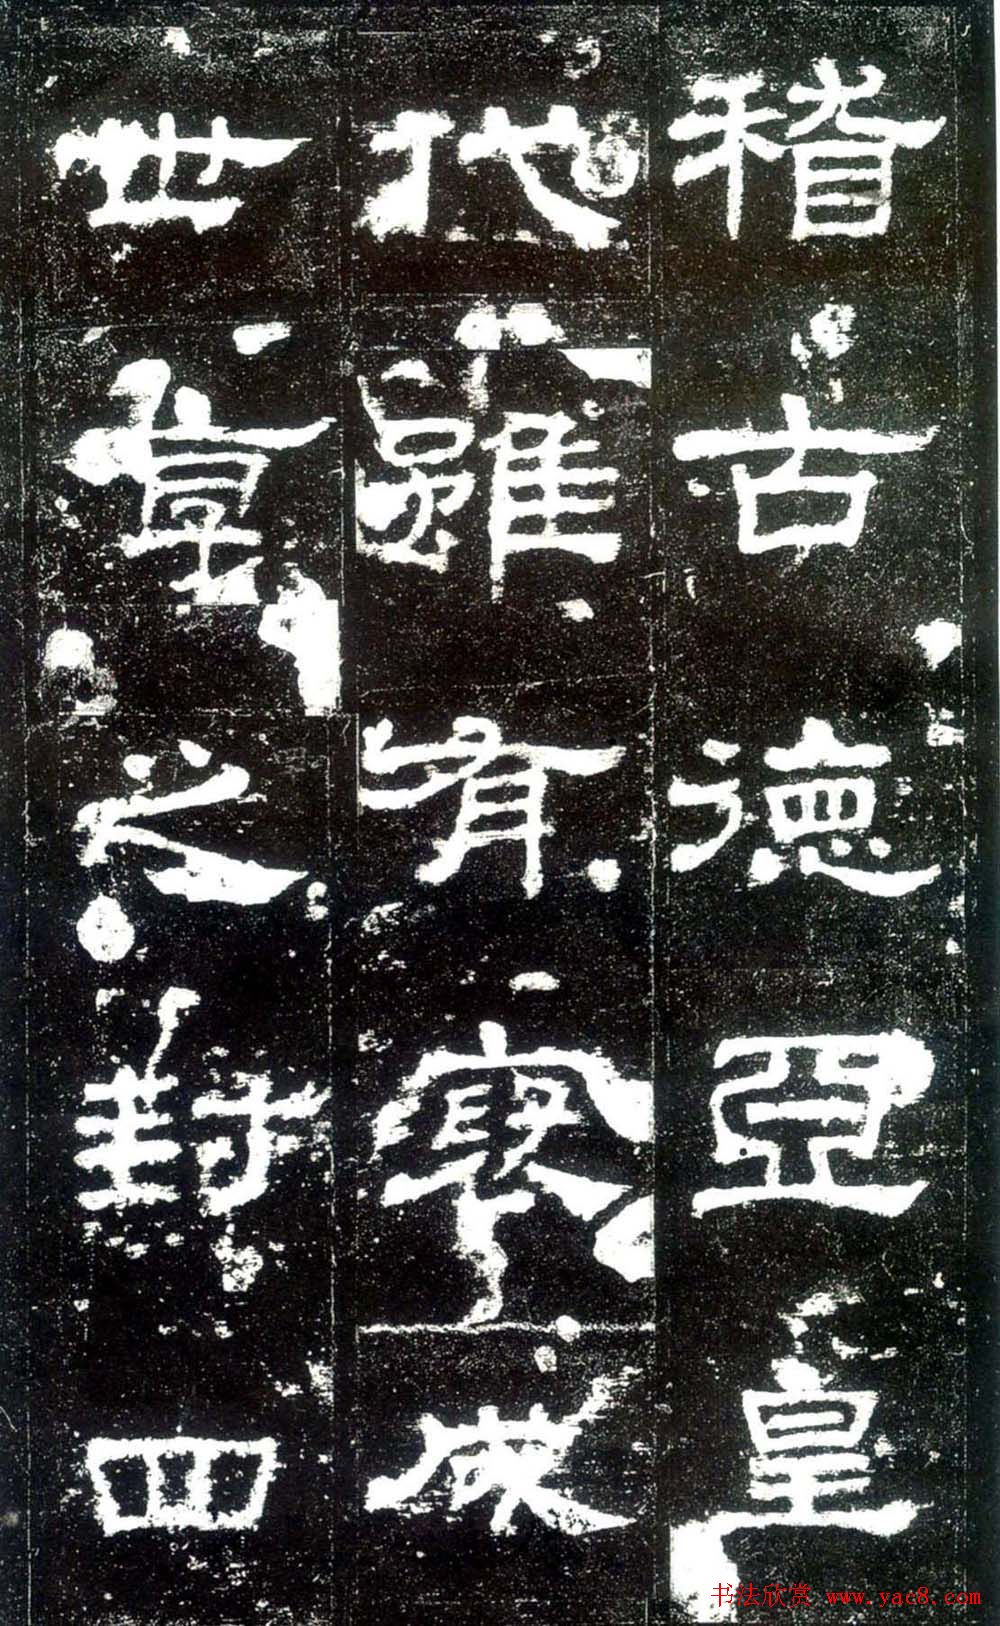 稽古德亞皇
代雖有褒成
世享之封四
书法欣赏 www.yac8.com